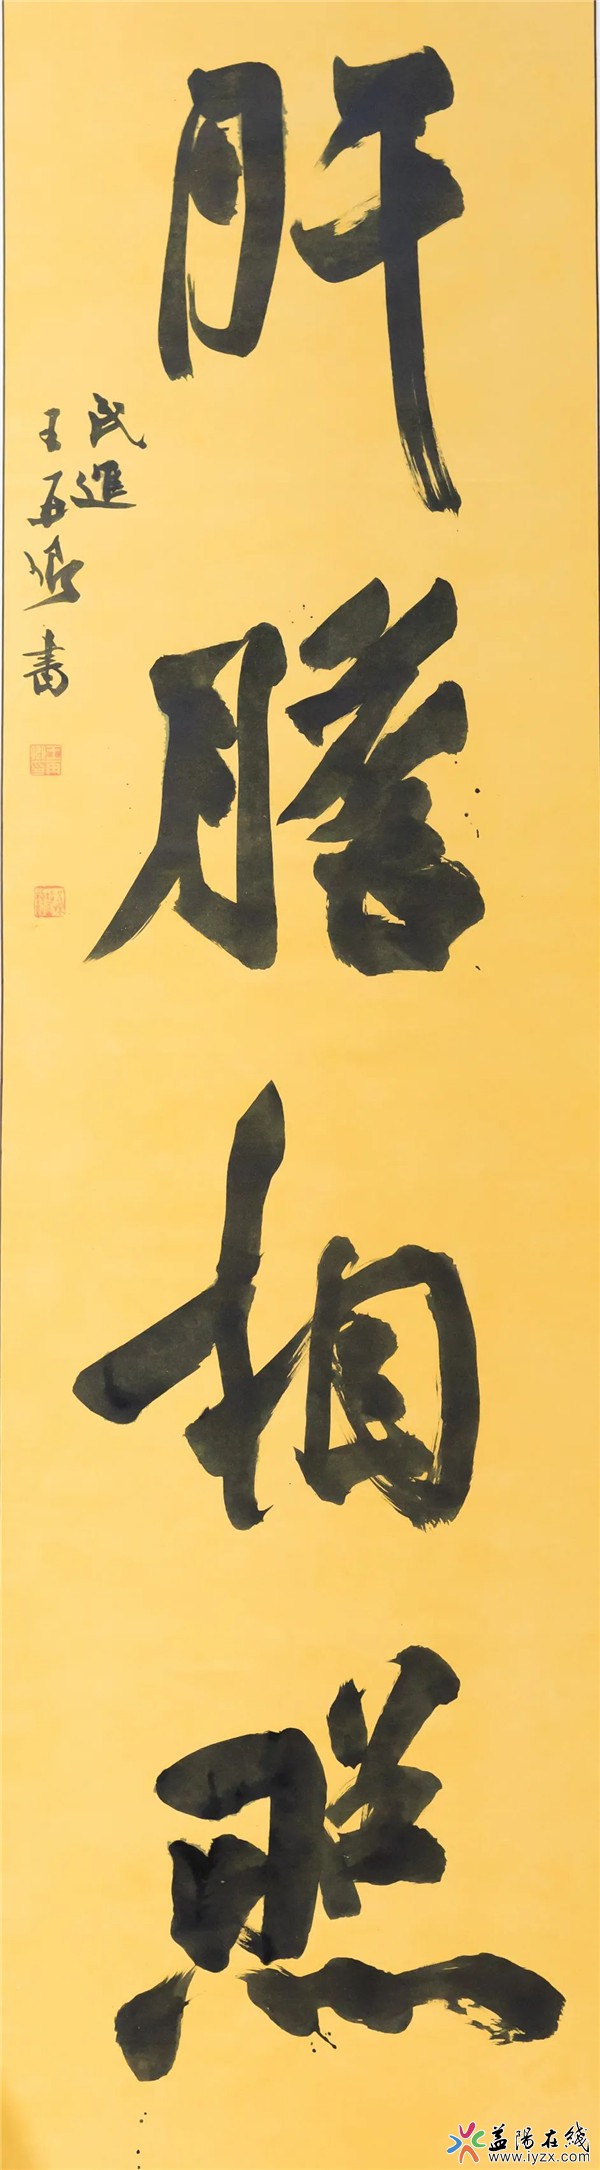 肝膽相照
民進
王再鴻書
益陽在線
www.iyzx.com